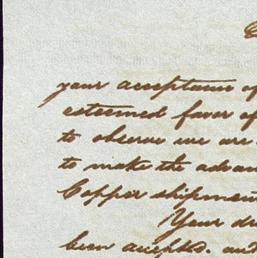 your acceptance of
esteemed favor of
to observe we are
to make the advan
Copper shipmen
Your dr
been accepted. and